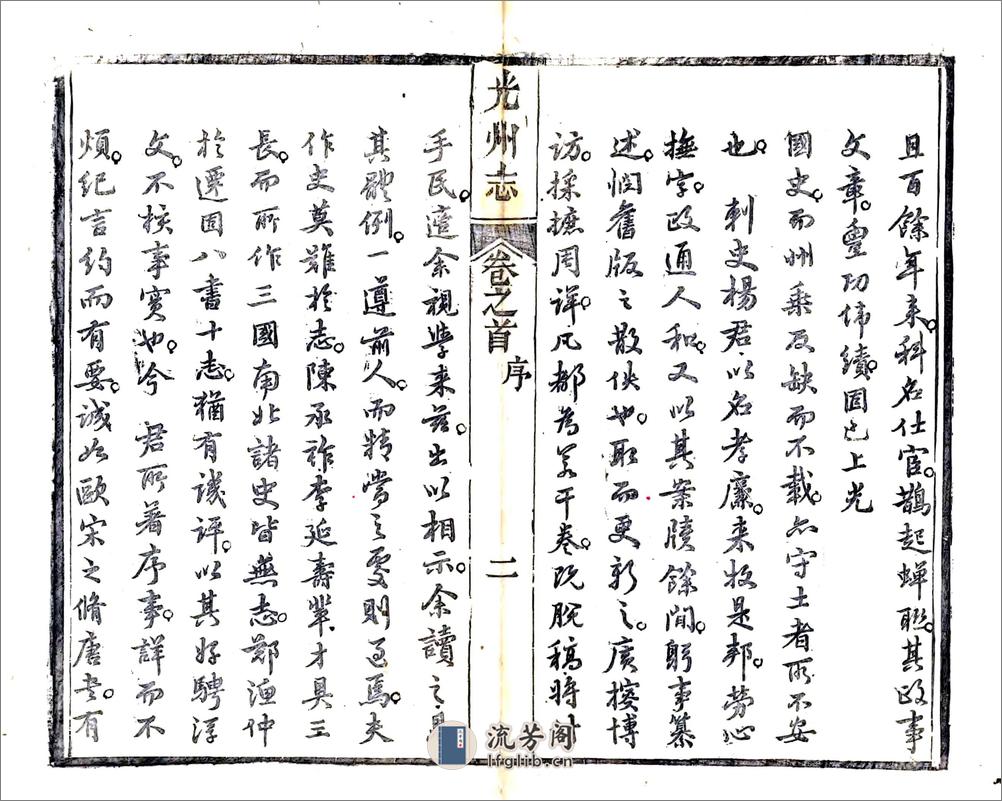 且百餘年来科名仕宦鵲起蟬聯其政事
文章豐功偉績固已上光
國史而州乘反缺而不載亦守土者所不安
也 刺史楊君以名孝廉来牧是邦勞心
撫字政通人和又以其案牘餘閒躬事纂
述憫舊版之散佚也取而更新之廣搜博
訪採摭周詳凡都為若干卷既脫稿將付
光州志 卷之首 序 二
手民適余視學来茲出以相示余讀之見
其體例一遵前人而精當之處則過焉夫
作史莫難於志陳承祚李延壽輩才具三
長而所作三國南北諸史皆無志鄭漁仲
於遷固八書十志猶有譏評以其好騁浮
文不核事實也今 君所著序事詳而不
煩紀言約而有要誠如歐宋之脩唐书有
流芳阁
lfglib.cn